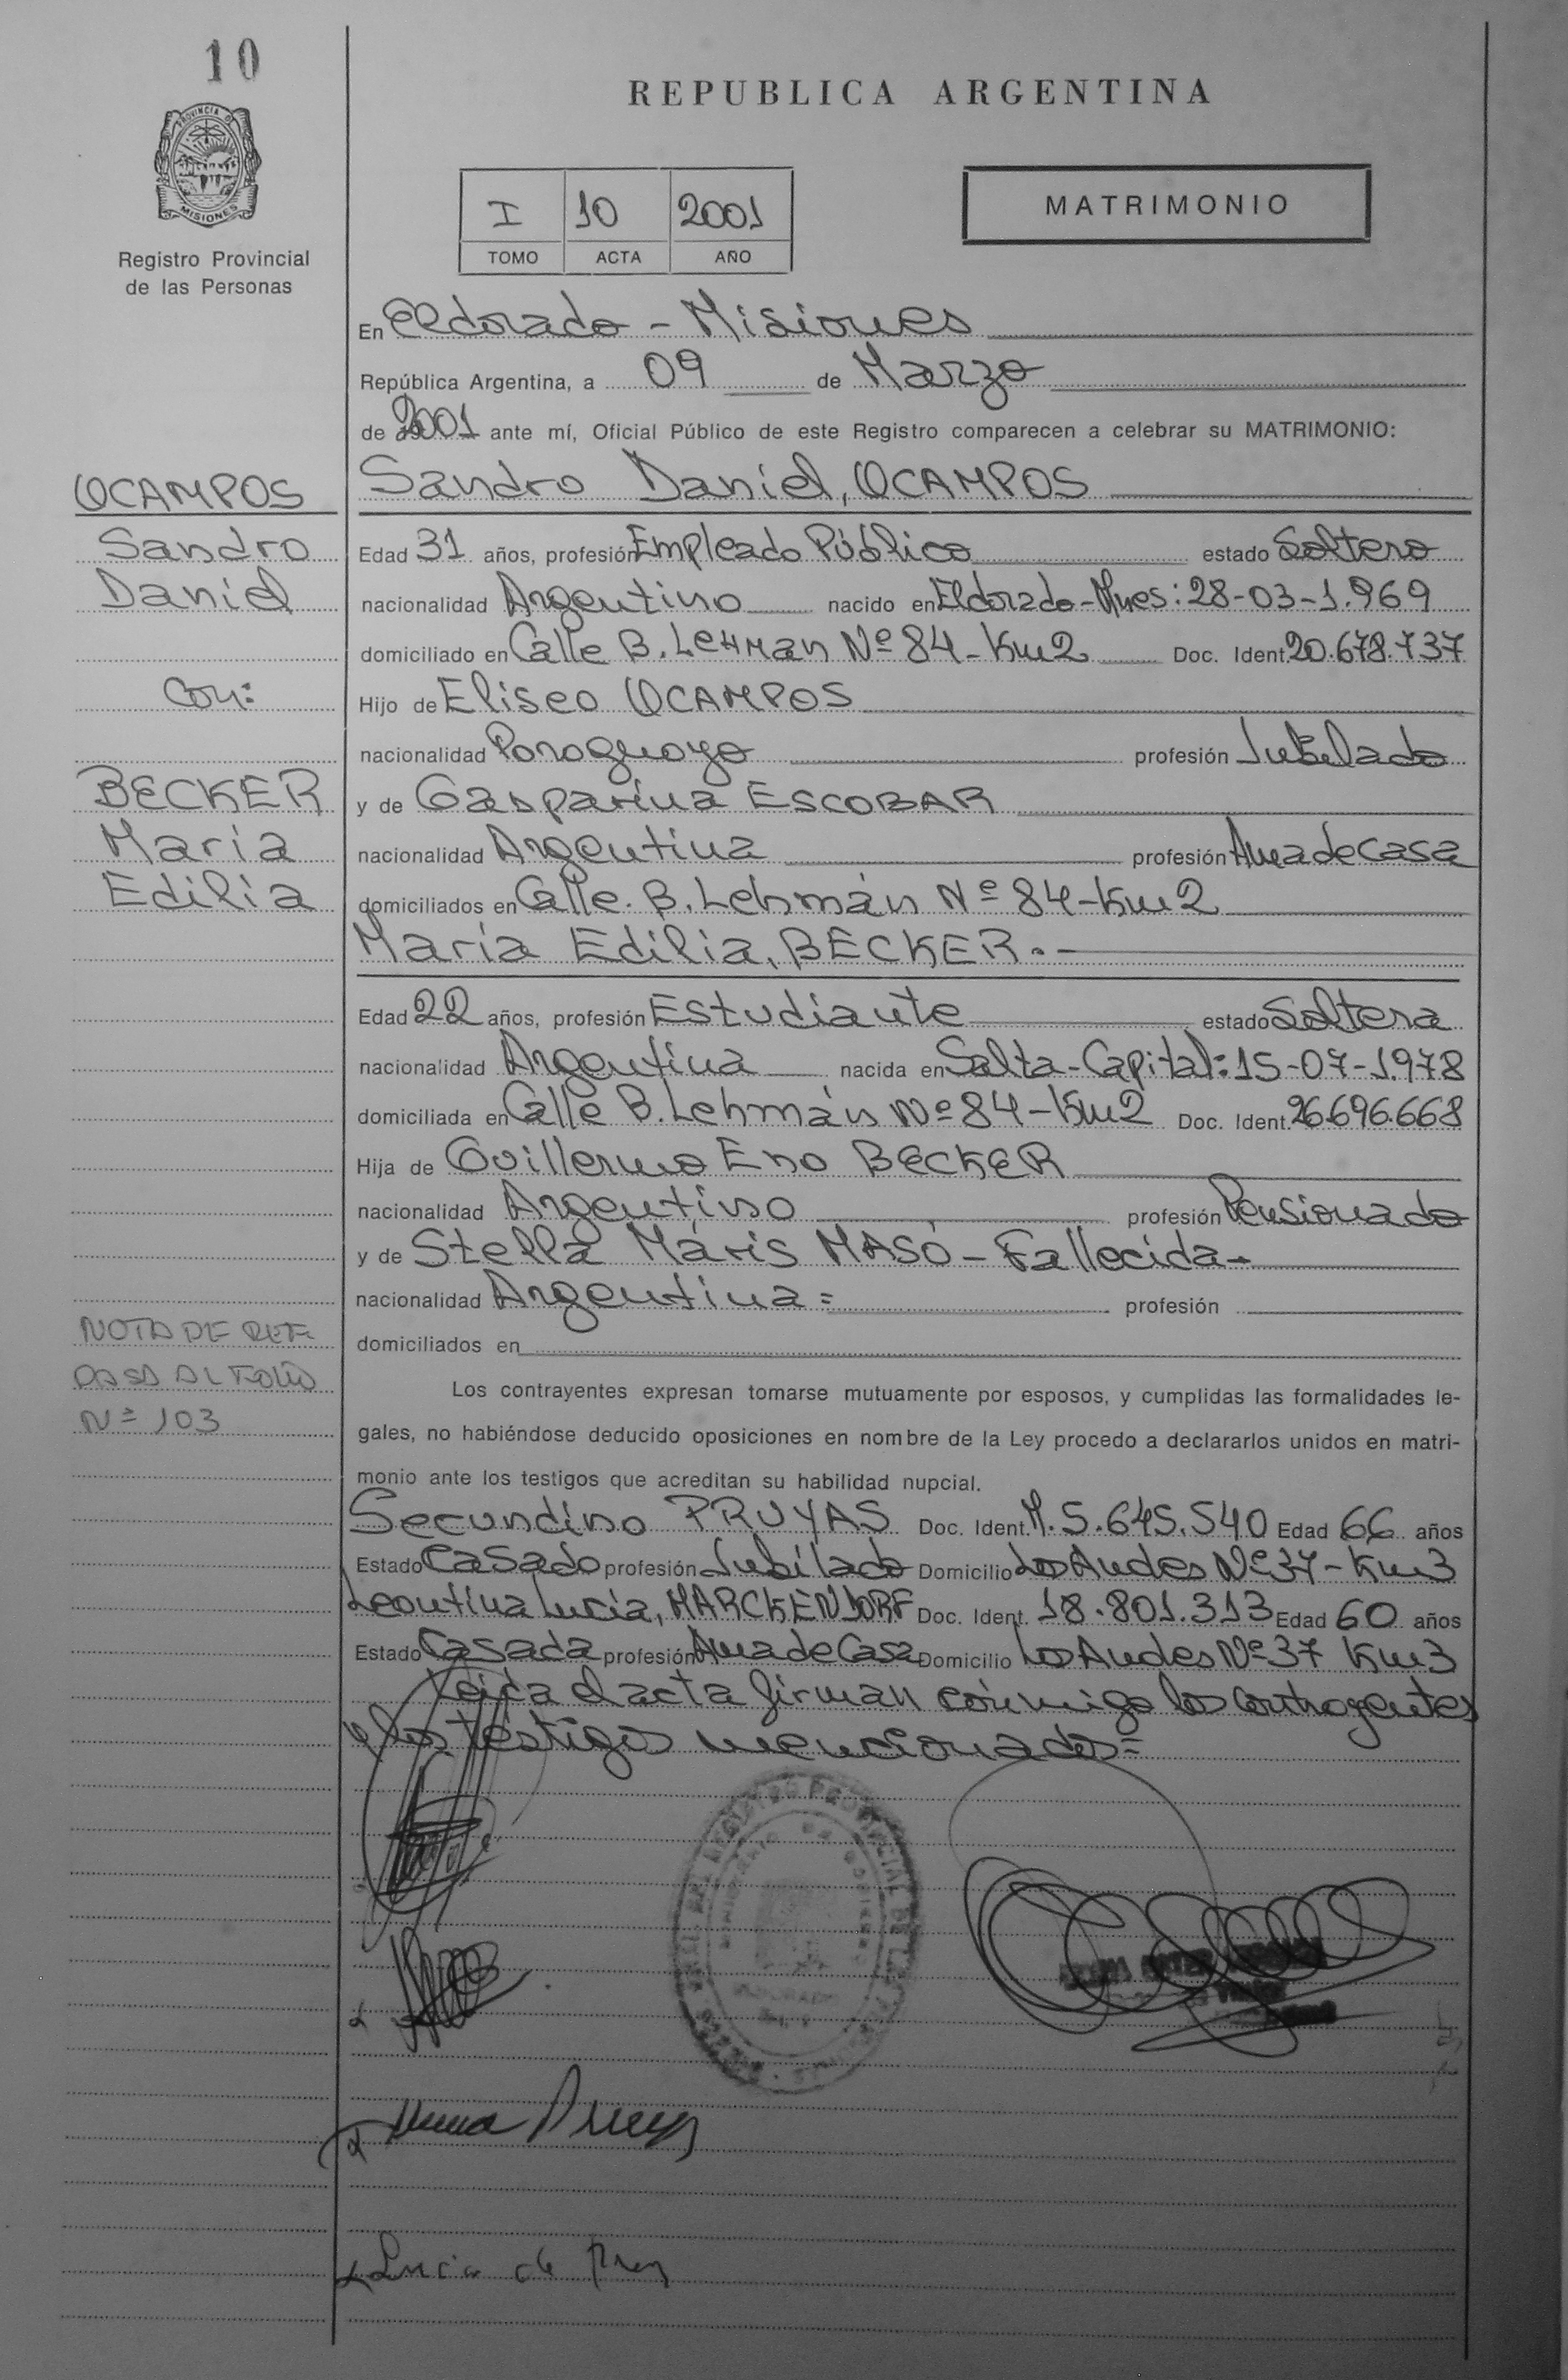 10
REPUBLICA ARGENTINA
PROVINCIA DE
MISIONES
Registro Provincial
de las Personas
I 10 2001
TOMO ACTA AÑO
MATRIMONIO
En Eldorado - Misiones
República Argentina, a 09 de Marzo
de 2001 ante mí, Oficial Público de este Registro comparecen a celebrar su MATRIMONIO:
Sandro Daniel, OCAMPOS
Edad 31 años, profesión Empleado Público estado Soltero
nacionalidad Argentino nacido en Eldorado-Mnes: 28-03-1.969
domiciliado en Calle B. Lehman Nº 84 - Km 2 Doc. Ident. 20.678.737
Hijo de Eliseo OCAMPOS
nacionalidad Paraguayo profesión Jubilado
y de Gasparina ESCOBAR
nacionalidad Argentina profesión Ama de Casa
domiciliados en Calle. B. Lehmán Nº 84 - Km 2
María Edilia, BECKER.-
Edad 22 años, profesión Estudiante estado Soltera
nacionalidad Argentina nacida en Salta-Capital: 15-07-1.978
domiciliada en Calle B. Lehmán Nº 84 - Km 2 Doc. Ident. 26.696.668
Hija de Guillermo Eno BECKER
nacionalidad Argentino profesión Pensionado
y de Stella Maris MASÓ - Fallecida -
nacionalidad Argentina = profesión
domiciliados en
Los contrayentes expresan tomarse mutuamente por esposos, y cumplidas las formalidades le-
gales, no habiéndose deducido oposiciones en nombre de la Ley procedo a declararlos unidos en matri-
monio ante los testigos que acreditan su habilidad nupcial.
Secundino PRUYAS Doc. Ident. M. 5.645.540 Edad 66 años
Estado Casado profesión Jubilado Domicilio Los Andes Nº 37 - Km 3
Leontina Lucia, MARCKENDORF Doc. Ident. 18.801.313 Edad 60 años
Estado Casada profesión Ama de Casa Domicilio Los Andes Nº 37 Km 3
Leida el acta firman conmigo los contrayentes
y los testigos mencionados =
OCAMPOS
Sandro
Daniel
Con:
BECKER
María
Edilia
NOTA DE REF.
PASA AL FOLIO
Nº 103
Lucia de